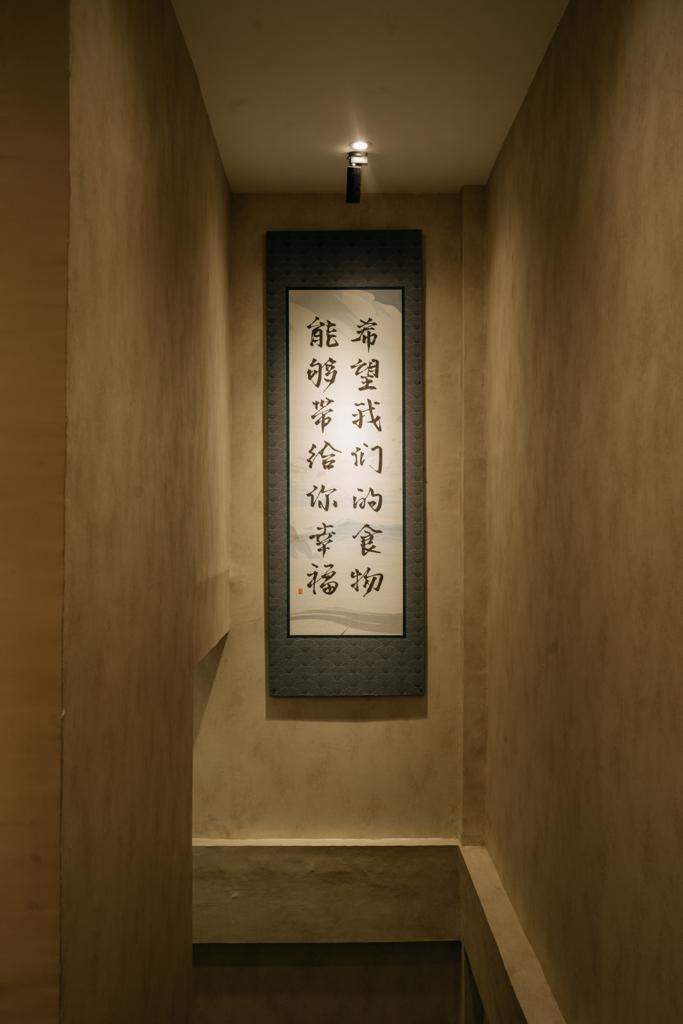 希望我们的食物
能够带给你幸福